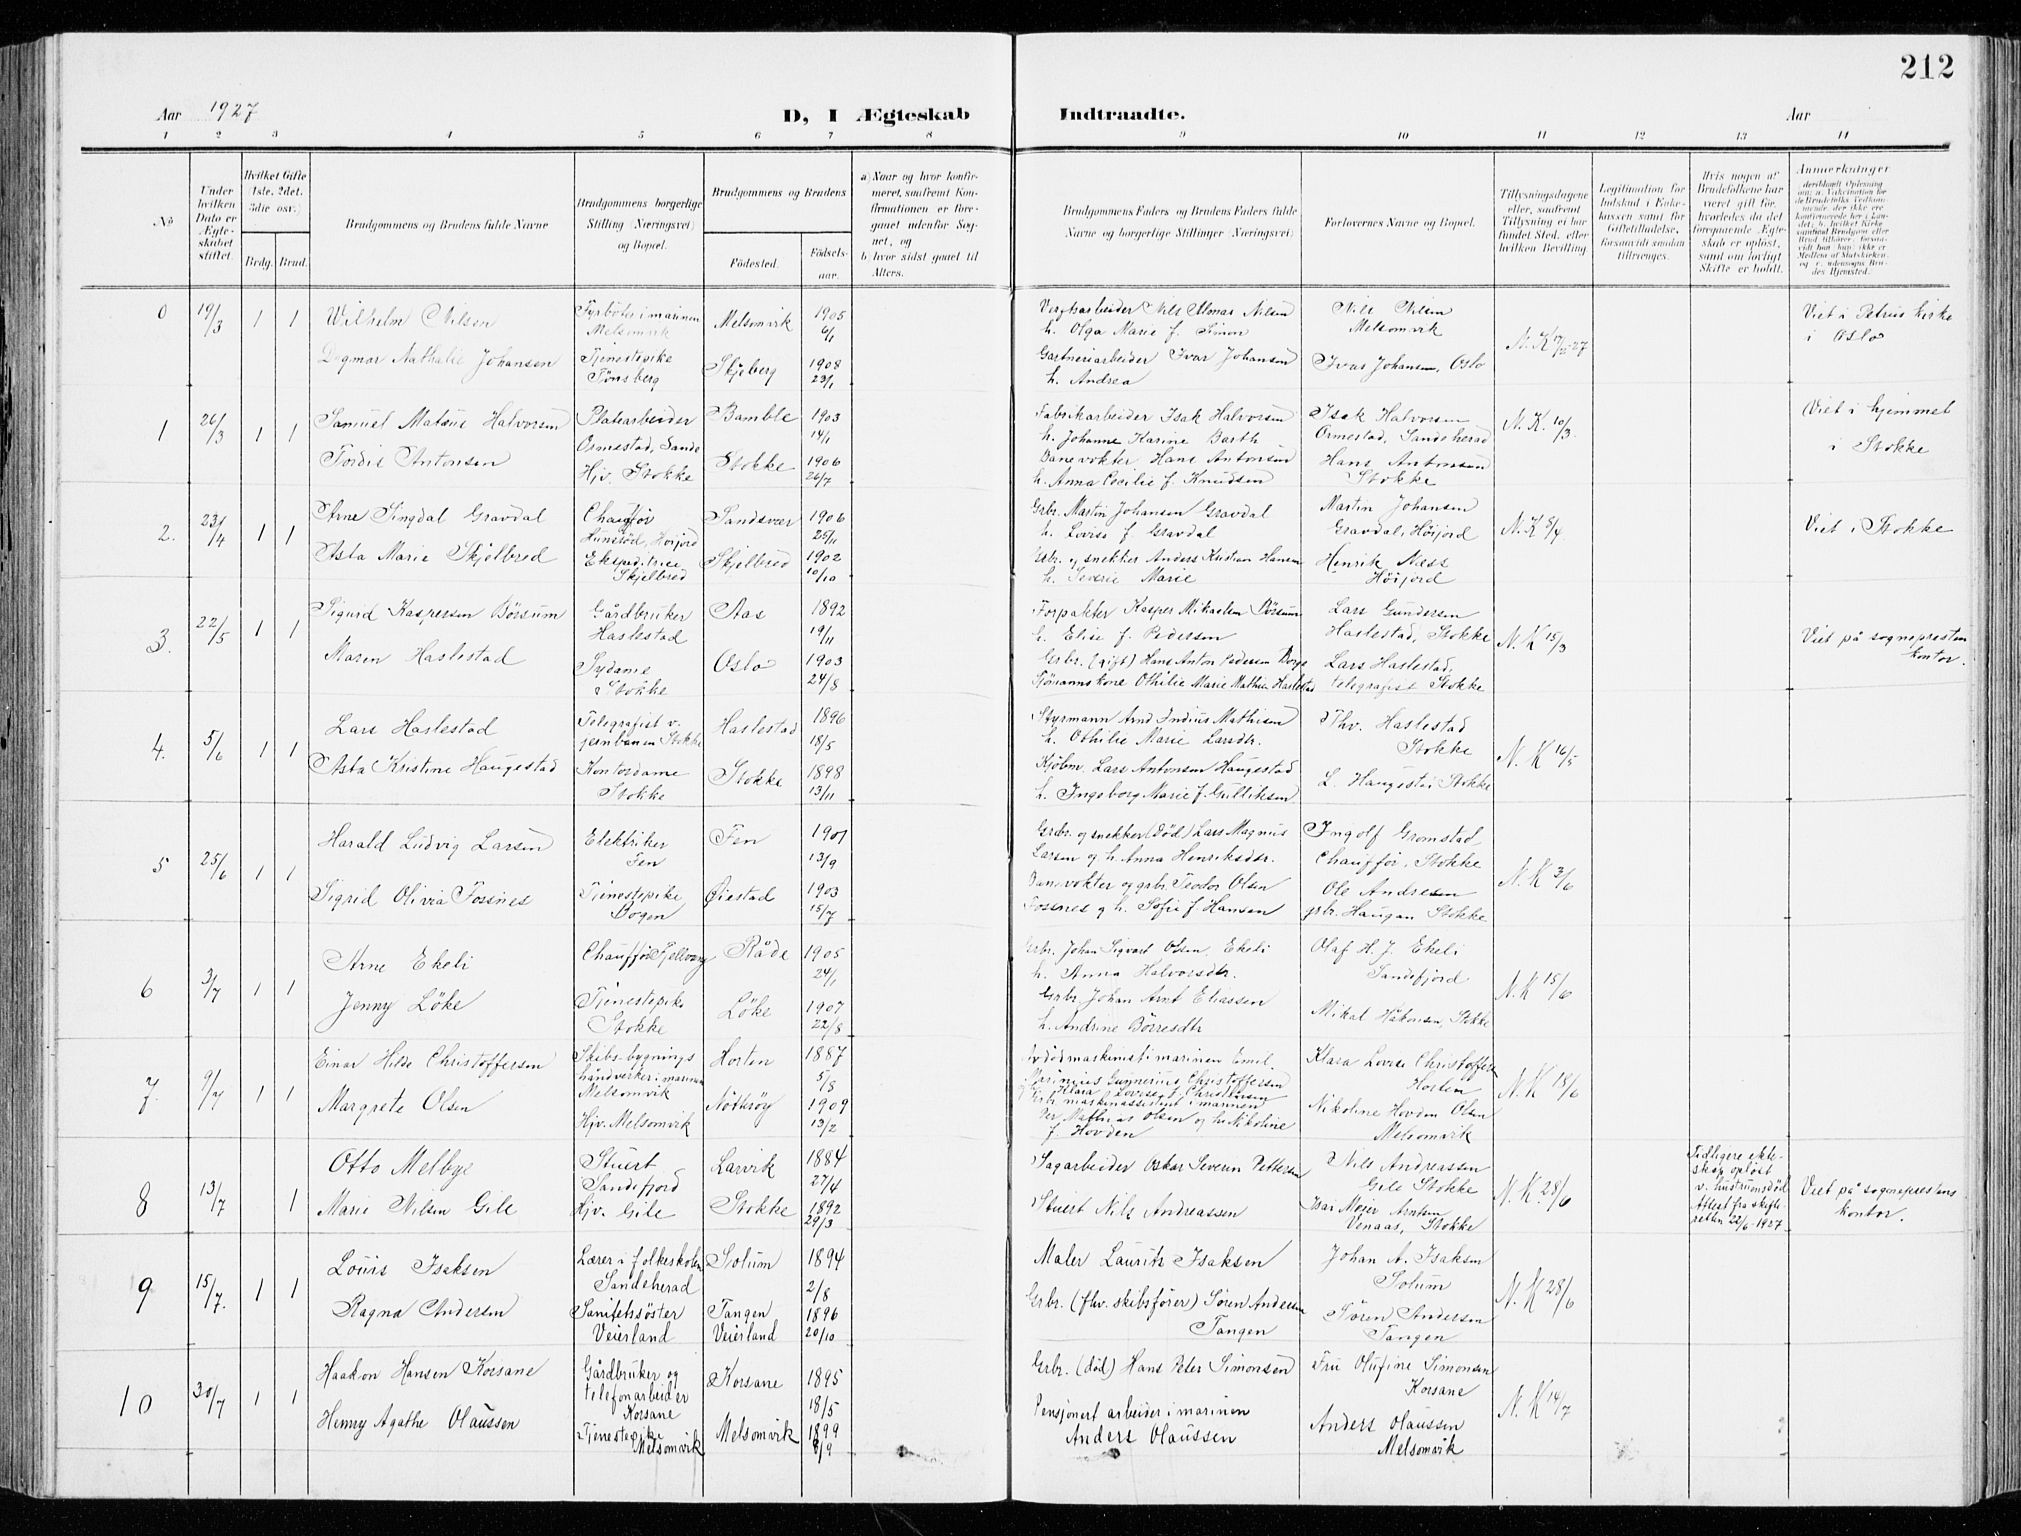 212
Aar 1927
D, I Ægteskab Indtraadte.
Aar
1 2 3 4 5 6 7 8 9 10 11 12 13 14
No
Under hvilken Dato er Ægteskabet stiftet.
Hvilket Gifte (1ste, 2det, 3die osv.)
Brdg. Brud.
Brudgommens og Brudens fulde Navne
Brudgommens borgerlige Stilling (Næringsvei) og Bopæl.
Brudgommens og Brudens
Fødested.
Fødselsaar.
a) Naar og hvor konfirmeret, saafremt Konfirmationen er foregaaet udenfor Sognet, og
b) hvor sidst gaaet til Alters.
Brudgommens Faders og Brudens Faders fulde Navne og borgerlige Stillinger (Næringsvei)
Forlovernes Navne og Bopæl.
Tillysningsdagene eller, saafremt Tillysning ei har fundet Sted, efter hvilken Bevilling.
Legitimation for Indskud i Enkekassen samt for Giftetilladelse, forsaavidt saadan tiltrænges.
Hvis nogen af Brudefolkene har været gift før, hvorledes da det foregaaende Ægteskab er opløst, samt om lovligt Skifte er holdt.
Anmerkninger
0 19/3 1 1
Wilhelm Nilsen
Dagmar Nathalie Johansen
Fyrbøter i marinen
Melsomvik
Tjenestepike
Tønsberg
Melsomvik 1905 6/1
Skjeberg 1908 23/1
Verftsarbeider Nils Nilsen
h. Olga Marie f. Simon
Gartneriarbeider Ivar Johansen
h. Andrea
Nils Nilsen
Melsomvik
Ivar Johansen, Oslo
Viet i Petrus kirke
i Oslo
1 26/3 1 1
Samuel Halvorsen
Tordis Antonsen
Platearbeider
Hjv. Stokke
Bamble 1903 14/1
Stokke 1906 26/7
Fabrikarbeider Isak Halvorsen
h. Johanne Karine Barth
Banevokter Hans Antonsen
h. Anna Cecilie f. Knudsen
Isak Halvorsen
Ormestad, Sandeherad
Hans Antonsen
Stokke
N. K. 10/3
Viet i hjemmet
i Stokke
2. 23/4 1 1
Arne Gravdal
Asta Marie Skjelbred
Chauffør
Ekspeditrice
Skjelbred
Sandsvær 1906 25/11
Skjelbred 1902 10/10
Grbr. Martin Johansen Gravdal
h. Lovise f. Gravdal
Grbr. og snekker Anders Kristian Hansen
h. Severie Marie
Martin Johansen
Gravdal, Höijord
Henrik Næss
Höijord
N. K 5/4
Viet i Stokke
3. 22/5 1 1
Sigurd Kaspersen Börsum
Maren Haslestad
Gårdbruker
Haslestad
Sydame
Stokke
Aas 1892 19/11
Oslo 1903 24/8
Forpakter Kasper Mikaelsen Börsum
h. Elise f. Pedersen
Grbr. (gift) Hans Anton Pedersen Borge
Sjömannskone Othilie Marie Mathisen Haslestad
Lars Gundersen
Haslestad, Stokke
Lars Haslestad,
telegrafist Stokke
N. K 15/3
Viet på sogneprestens
kontor.
4. 5/6 1 1
Lars Haslestad
Asta Kristine Haugestad
Telegrafist v.
jernbanen Stokke
Kontordame
Stokke
Haslestad 1896 18/5
Stokke 1898 13/11
Styrmann Arnd Indius Mathisen
h. Othilie Marie Larsdtr.
Kjöbm. Lars Antonsen Haugestad
h. Ingeborg Marie f. Gulliksen
Thv. Haslestad
Stokke
L. Haugestad Stokke
N. K 16/5
5 25/6 1 1
Harald Ludvig Larsen
Sigrid Olivia Fossnes
Elektriker
Fen
Tjenestepike
Bogen
Fen 1901 13/9
Øiestad 1903 15/7
Grbr. og snekker (död) Lars Magnus
Larsen og h. Anna Henriksdtr.
Banevokter og grbr. Teodor Olsen
Fossnes og h. Sofie f. Hansen
Ingolf Gromstad
Chauffør, Stokke
Ole Andresen
grbr. Haugan Stokke
N. K 3/6
6 3/7 1 1
Arne Ekeli
Jenny Löke
Chauffør Fjellvang
Tjenestepike
Stokke
Råde 1905 24/1
Löke 1907 22/8
Grbr. Johan Sigvart Olsen Ekeli
h. Anna Halvorsdtr.
Grbr. Johan Arnt Eliassen
h. Andrine Börresdtr
Olaf H. J. Ekeli
Sandefjord
Mikal Håkonsen, Stokke
N. K 15/6
7. 9/7 1 1
Einar Hilde Christoffersen
Margrete Olsen
Skibsbygnings
håndverker i marinen
Melsomvik
Hjv. Melsomvik
Horten 1887 5/8
Nötteröy 1909 13/2
Avdöd maskinist i marinen Emil
Marinius Gunnerius Christoffersen
og Klara Lovise f. Christensen
Grbr. maskinassistent i marinen
Per Mathias Olsen og h. Nikoline
f. Hovden
Klara Lovise Christoffersen
Horten
Nikoline Hovden Olsen
Melsomvik
N. K 18/6
8 13/7 1
Otto Melbye
Marie Nilsen Gile
Stuert
Sandefjord
Hjv. Gile
Larvik 1884 27/4
Stokke 1892 29/3
Sagarbeider Oskar Severin Pettersen
Stuert Nils Andreassen
Nils Andreassen
Gile Stokke
Venaas, Stokke
N. K. 28/6
Tidligere ekteskap opløst
v. hustruens död
Attest fra skifteretten 22/6-1927.
Viet på sogneprestens
kontor.
9 15/7. 1 1
Louis Isaksen
Ragna Andersen
Lærer i folkeskolen
Sandeherad
Sanitetssöster
Veierland
Solum 1894 2/8
Tangen
Veierland 1896 20/10
Maler Lauritz Isaksen
Grbr. (fhv. skibsfører) Sören Andersen
Tangen
Johan A. Isaksen
Solum
Sören Andersen
Tangen
N. K 28/6
10 30/7 1 1
Haakon Hansen Korsane
Henny Agathe Olaussen
Gårdbruker og
telefonarbeider
Korsane
Tjenestepike
Melsomvik
Korsane 1895 18/5
Melsomvik 1899 8/9
Grbr. (död) Hans Peter Simonsen
Pensjonert arbeider i marinen
Anders Olaussen
Fru Olufine Simonsen
Korsane
Anders Olaussen
Melsomvik
N. K 14/7